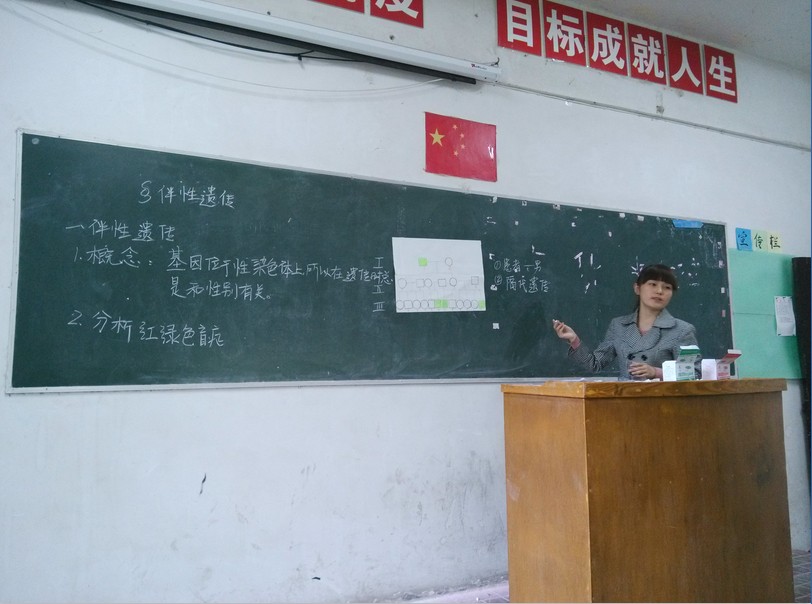 度
目标成就人生
§伴性遗传
一伴性遗传
1.概念：基因位于性染色体上所以在遗传时总
是和性别有关。
2.分析红绿色盲症
I
II
III
①患者：男
②隔代遗传
宣传栏